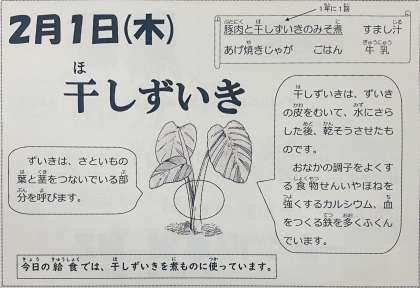 2月1日(木)
1年に1回
豚肉と干しずいきのみそ煮　すまし汁
あげ焼きじゃが　ごはん　牛乳
干しずいき
ずいきは、さといもの
葉と茎をつないでいる部
分を呼びます。
干しずいきは、ずいき
の皮をむいて、水にさら
した後、乾そうさせたも
のです。
おなかの調子をよくす
る食物せんいやほねを
強くするカルシウム、血
をつくる鉄を多くふくん
でいます。
今日の給食では、干しずいきを煮ものに使っています。